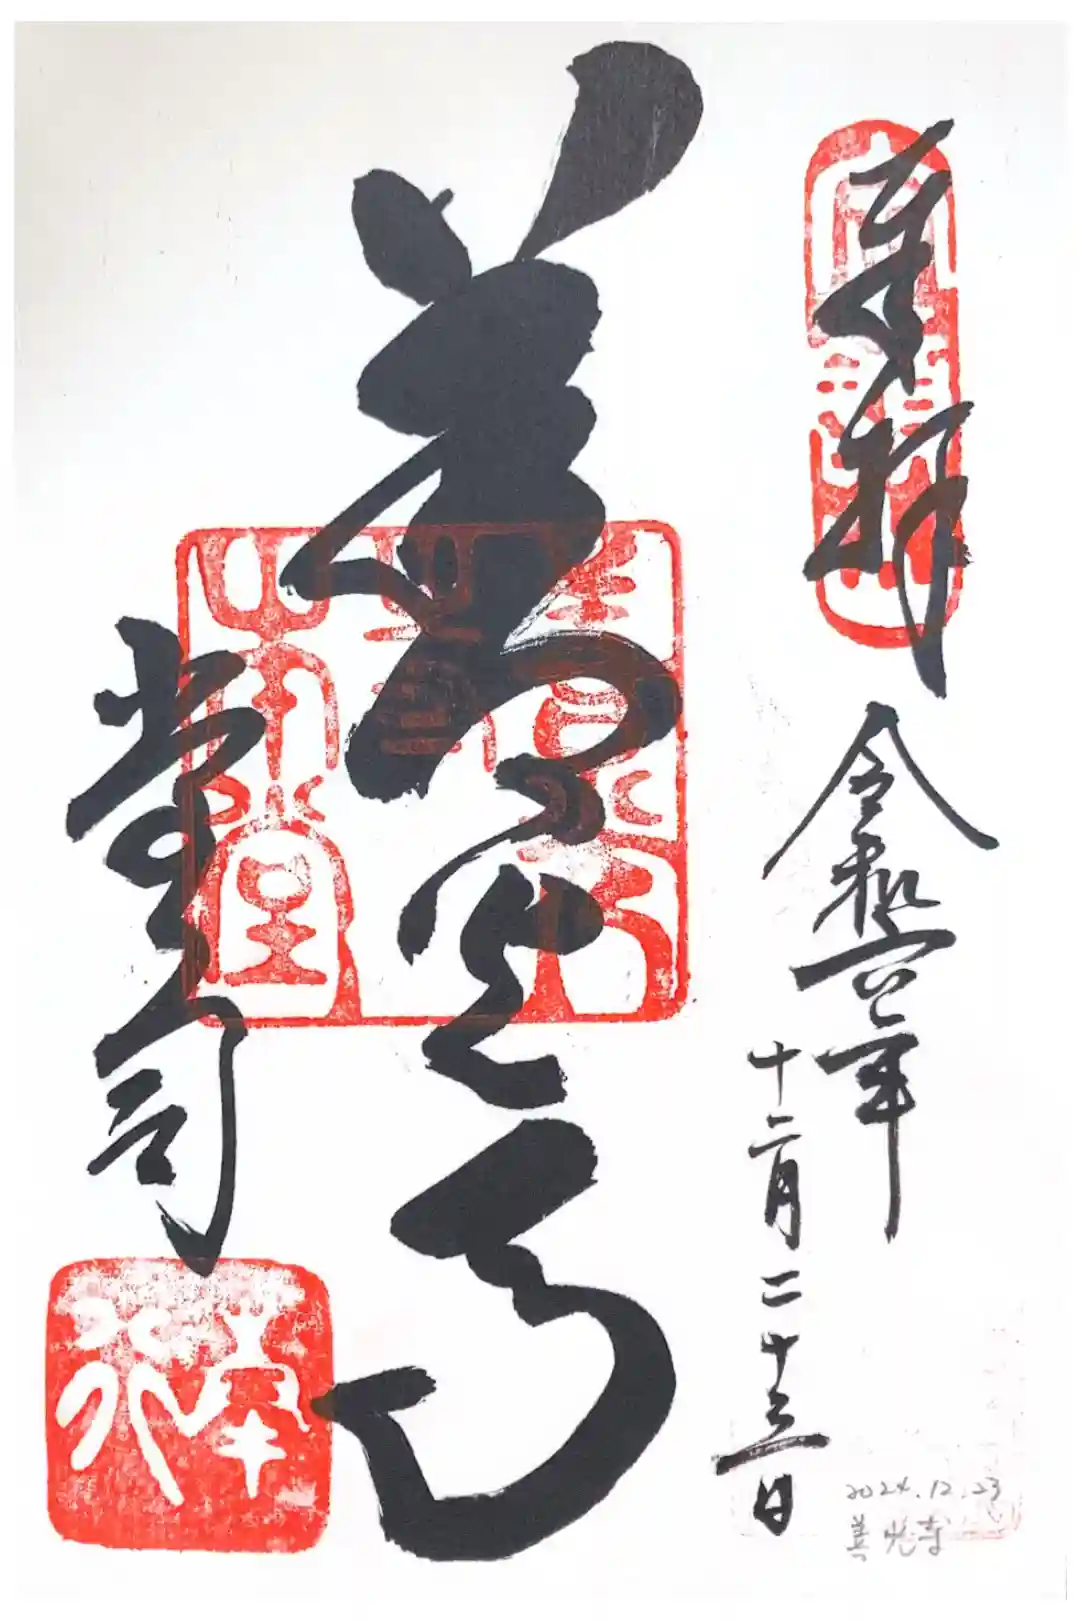 奉拝
令和六年
十二月二十三日
善光寺
堂司
本堂
2024.12.23
善光寺